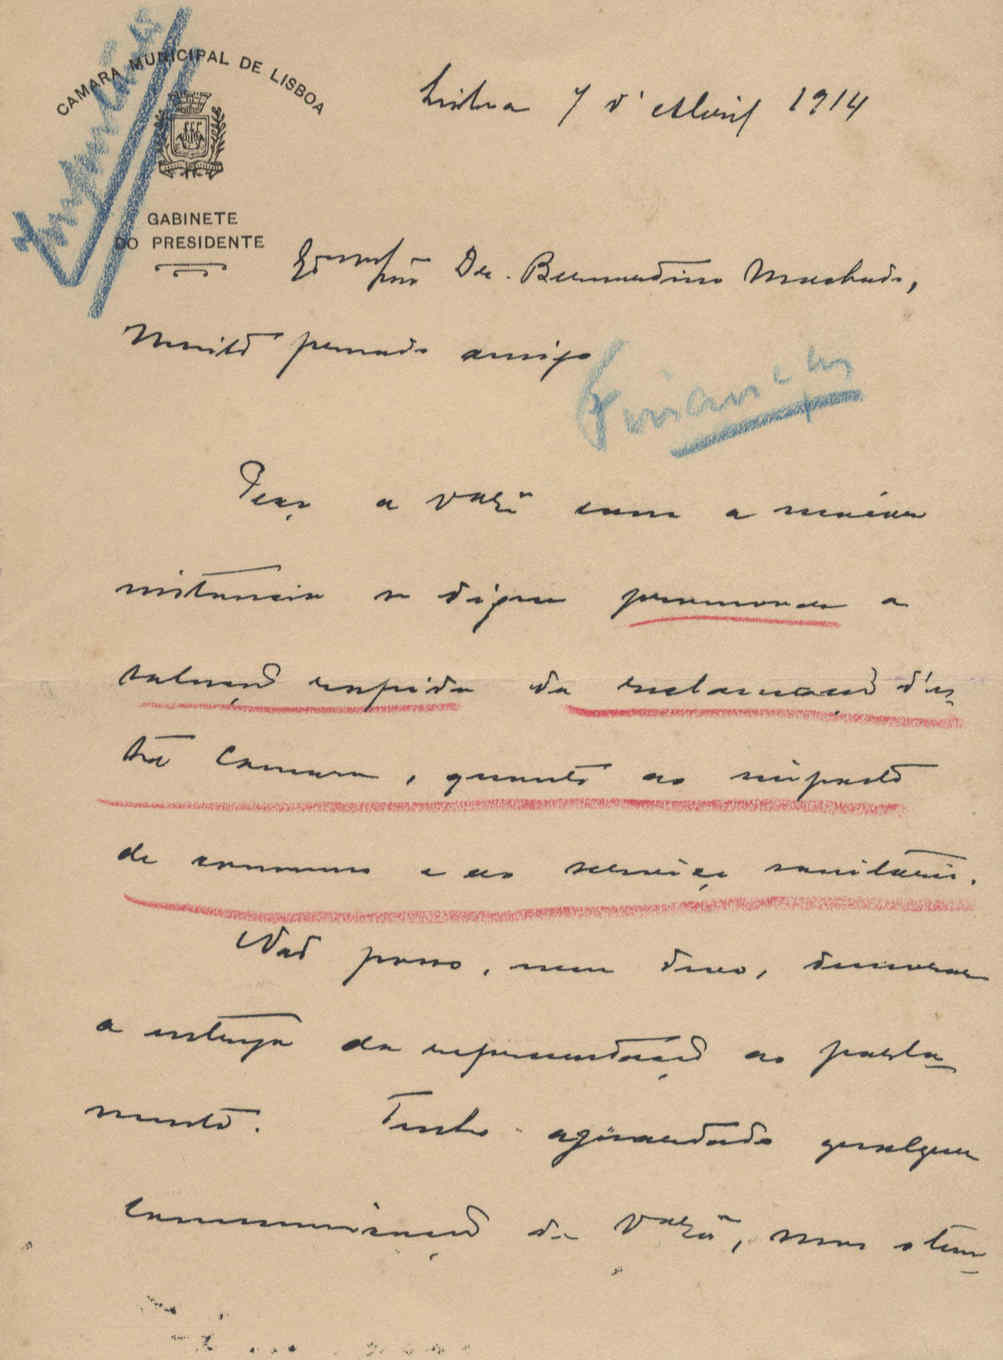 CAMARA MUNICIPAL DE LISBOA
GABINETE
DO PRESIDENTE
Lisboa 7 d'Abril 1914
Exmo Snr Dr. Bernardino Machado,
Muito presado amigo
Finanças
Peço a V. Exª com a maior
instancia se digne promover a
solução rapida da reclamação d'es-
ta Camara, quanto ao imposto
de consumo e ao serviço sanitario.
Não posso, nem devo, demorar
a entrega da representação ao parla-
mento. Tenho aguardado qualquer
communicação de V. Exª, mas o tem-